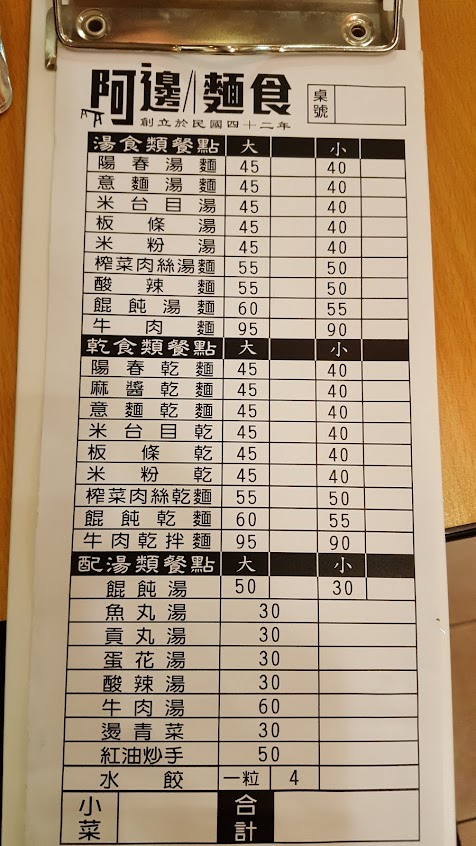 阿邊麵食
創立於民國四十二年
桌號
湯食類餐點 大 小
陽春湯麵 45 40
意麵湯麵 45 40
米台目湯 45 40
板條湯 45 40
米粉湯 45 40
榨菜肉絲湯麵 55 50
酸辣麵 55 50
餛飩湯麵 60 55
牛肉麵 95 90
乾食類餐點 大 小
陽春乾麵 45 40
麻醬乾麵 45 40
意麵乾麵 45 40
米台目乾 45 40
板條乾 45 40
米粉乾 45 40
榨菜肉絲乾麵 55 50
餛飩乾麵 60 55
牛肉乾拌麵 95 90
配湯類餐點 大 小
餛飩湯 50 30
魚丸湯 30
貢丸湯 30
蛋花湯 30
酸辣湯 30
牛肉湯 60
燙青菜 30
紅油炒手 50
水餃 一粒 4
小菜 合計